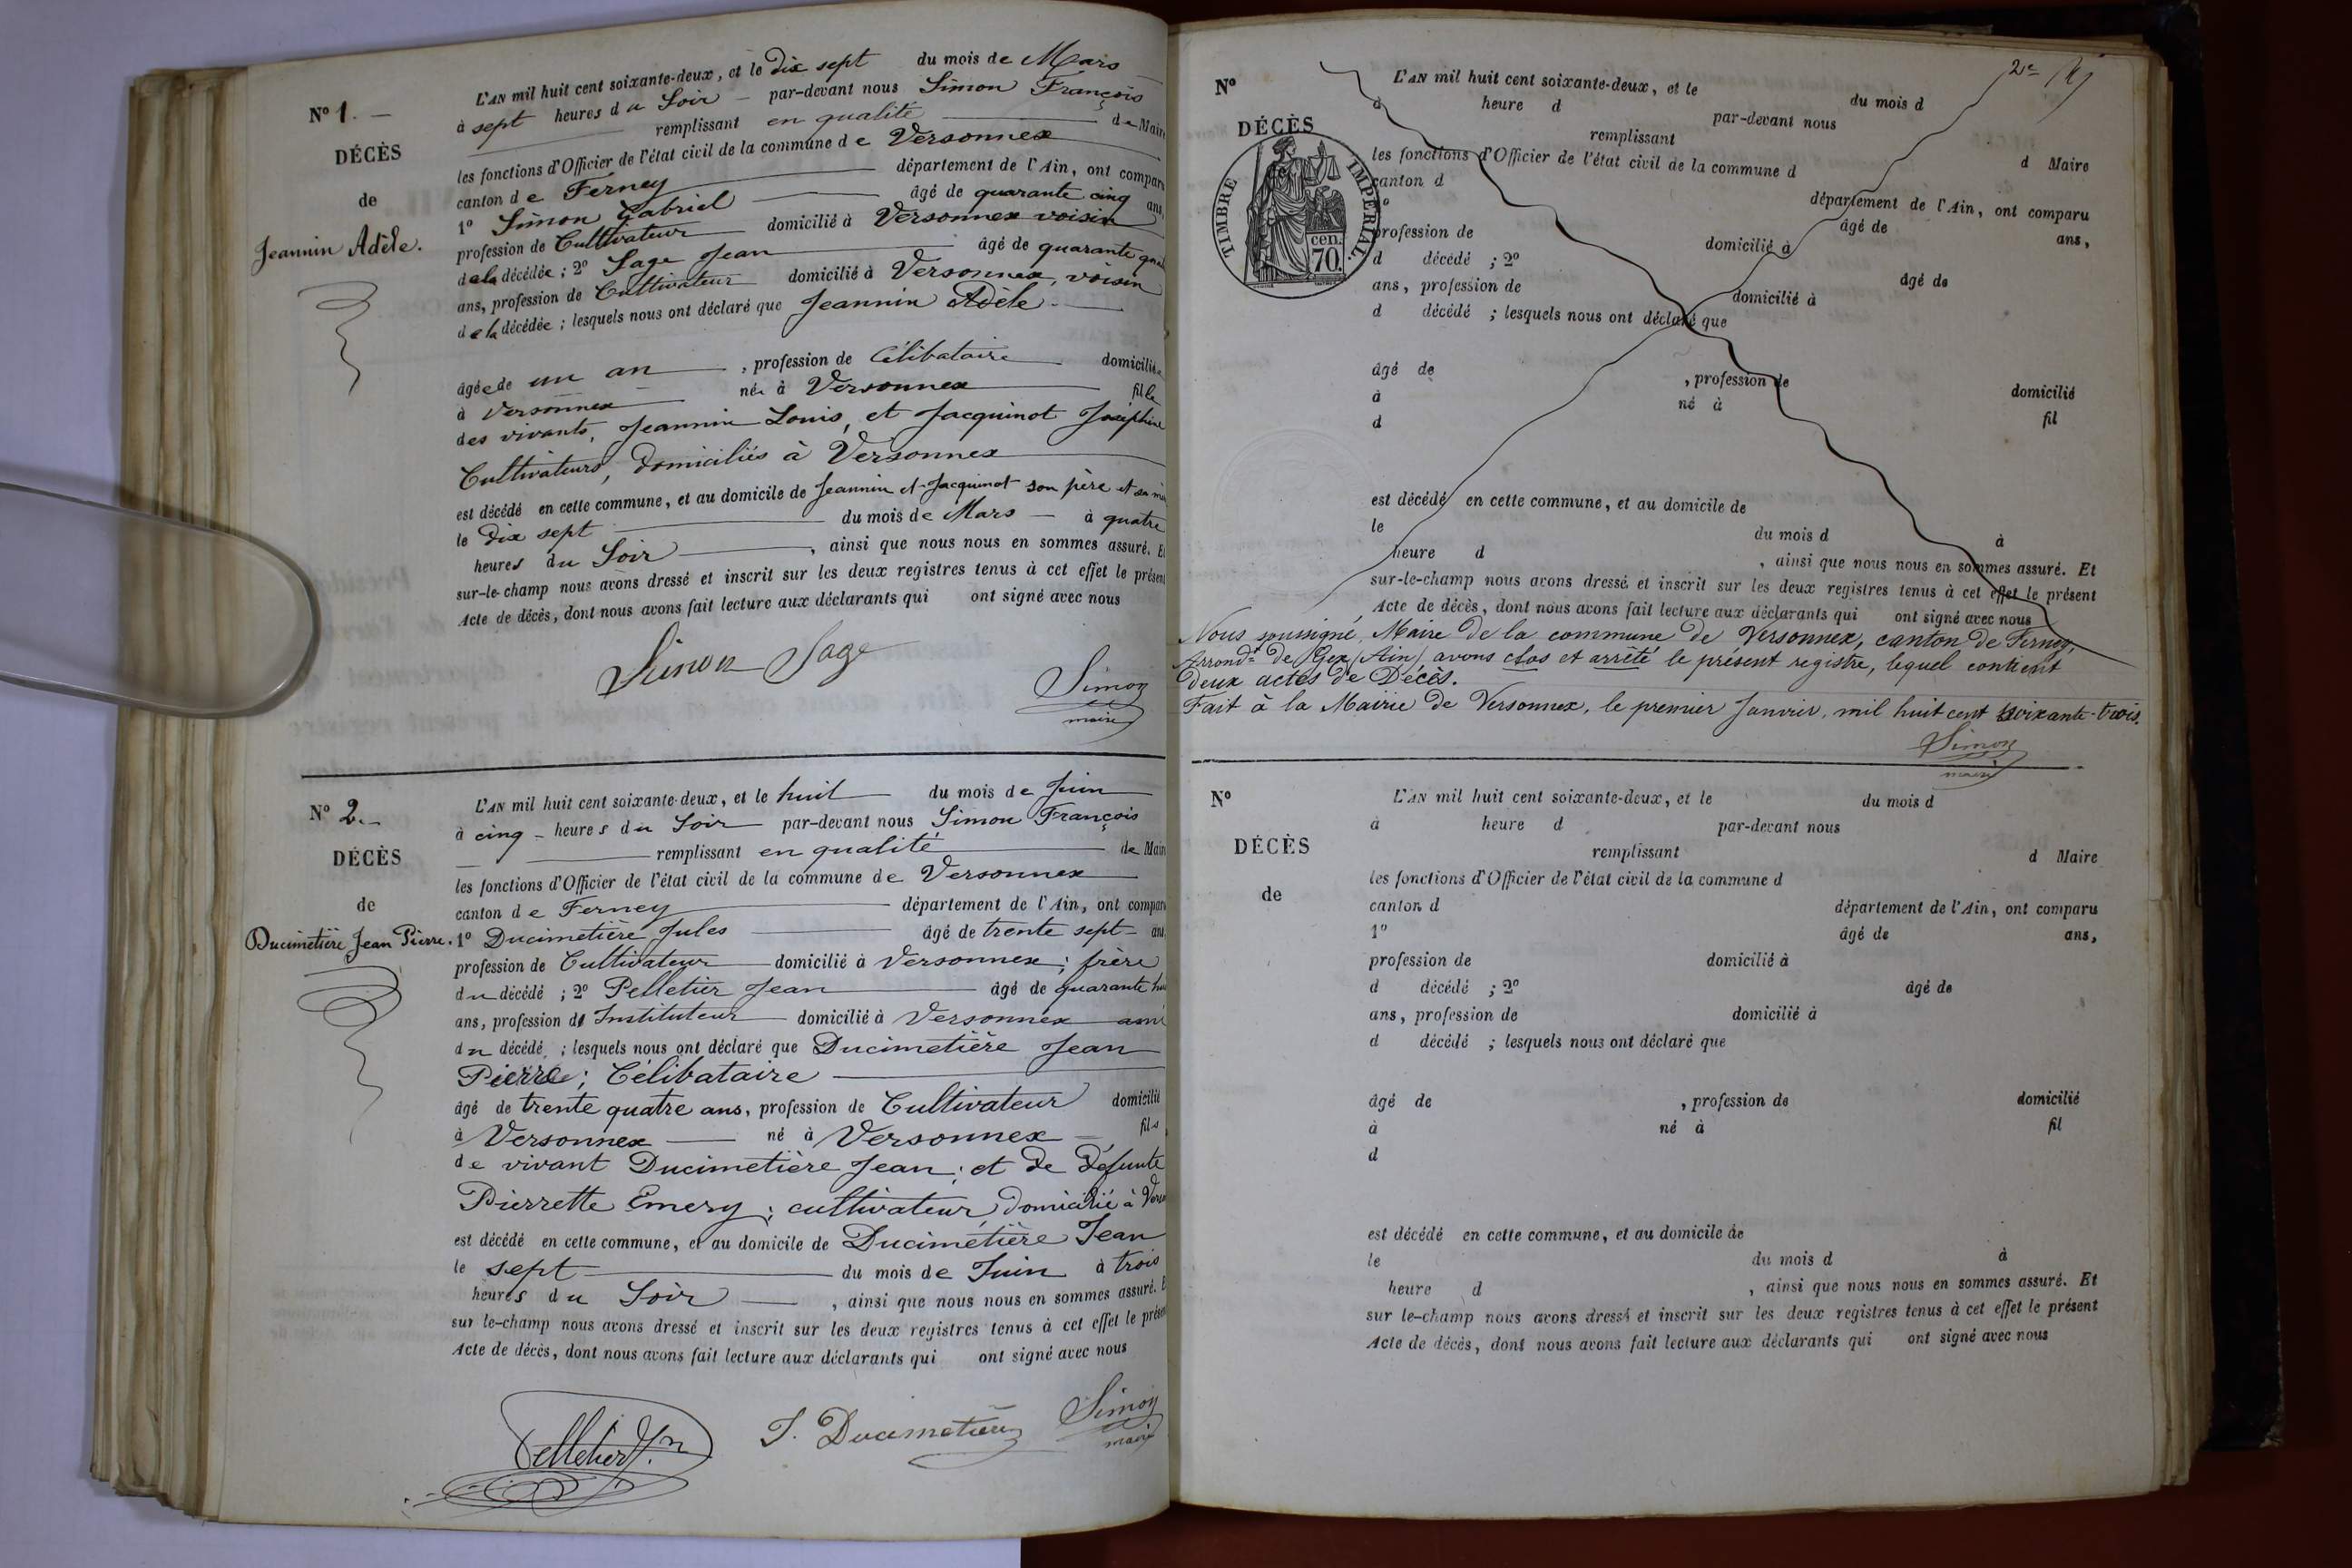 N° 1. —
DÉCÈS
de
Jeannin Adèle.
L'AN mil huit cent soixante-deux, et le dix sept du mois de Mars
à sept heures du Soir — par-devant nous Simon François
remplissant en qualité de Maire
les fonctions d'Officier de l'état civil de la commune de Versonnex
canton de Ferney département de l'Ain, ont comparu
1° Simon Gabriel âgé de quarante cinq ans,
profession de Cultivateur domicilié à Versonnex voisin
de la décédée ; 2° Sage Jean âgé de quarante
ans, profession de Cultivateur domicilié à Versonnex, voisin
de la décédée ; lesquels nous ont déclaré que Jeannin Adèle
âgée de un an , profession de Célibataire domiciliée
à Versonnex née à Versonnex fille
des vivants, Jeannin Louis, et Jacquinot Joséphine
Cultivateurs, domiciliés à Versonnex
est décédé en cette commune, et au domicile de Jeannin et Jacquinot son père et sa
le dix sept du mois de Mars — à quatre
heures du Soir , ainsi que nous nous en sommes assuré. Et
sur-le-champ nous avons dressé et inscrit sur les deux registres tenus à cet effet le présent
Acte de décès, dont nous avons fait lecture aux déclarants qui ont signé avec nous
Simon Sage Simon
maire
N° 2.
DÉCÈS
de
Ducimetière Jean Pierre.
L'AN mil huit cent soixante-deux, et le huit du mois de Juin
à cinq — heures du Soir par-devant nous Simon François
remplissant en qualité de Maire
les fonctions d'Officier de l'état civil de la commune de Versonnex
canton de Ferney département de l'Ain, ont comparu
1° Ducimetière Jules âgé de trente sept — ans
profession de Cultivateur domicilié à Versonnex ; frère
du décédé ; 2° Pelletier Jean âgé de quarante
ans, profession de Instituteur domicilié à Versonnex ami
du décédé ; lesquels nous ont déclaré que Ducimetière Jean
Pierre ; Célibataire
âgé de trente quatre ans, profession de Cultivateur domicilié
à Versonnex né à Versonnex fils
de vivant Ducimetière Jean ; et de défunte
Pierrette Emery ; cultivateur, domicilié à
est décédé en cette commune, et au domicile de Ducimetière Jean
le sept du mois de Juin à trois
heures du Soir , ainsi que nous nous en sommes assuré.
sur le-champ nous avons dressé et inscrit sur les deux registres tenus à cet effet le présent
Acte de décès, dont nous avons fait lecture aux déclarants qui ont signé avec nous
Pelletier J. Ducimetière Simon
maire
2e
N°
DÉCÈS
TIMBRE IMPÉRIAL
cen.
70.
L'AN mil huit cent soixante-deux, et le du mois d
à heure d par-devant nous
remplissant d Maire
les fonctions d'Officier de l'état civil de la commune d
canton d département de l'Ain, ont comparu
1° âgé de ans,
profession de domicilié à
d décédé ; 2° âgé de
ans, profession de domicilié à
d décédé ; lesquels nous ont déclaré que
âgé de , profession de domicilié
à né à fil
d
est décédé en cette commune, et au domicile de
le du mois d à
heure d , ainsi que nous nous en sommes assuré. Et
sur-le-champ nous avons dressé et inscrit sur les deux registres tenus à cet effet le présent
Acte de décès, dont nous avons fait lecture aux déclarants qui ont signé avec nous
Nous soussigné, Maire de la commune de Versonnex, canton de Ferney,
Arrondt de Gex (Ain) avons clos et arrêté le présent registre, lequel contient
deux actes de Décès.
Fait à la Mairie de Versonnex, le premier Janvier, mil huit cent soixante-trois.
Simon
maire
N°
DÉCÈS
de
L'AN mil huit cent soixante-deux, et le du mois d
à heure d par-devant nous
remplissant d Maire
les fonctions d'Officier de l'état civil de la commune d
canton d département de l'Ain, ont comparu
1° âgé de ans,
profession de domicilié à
d décédé ; 2° âgé de
ans, profession de domicilié à
d décédé ; lesquels nous ont déclaré que
âgé de , profession de domicilié
à né à fil
d
est décédé en cette commune, et au domicile de
le du mois d à
heure d , ainsi que nous nous en sommes assuré. Et
sur le-champ nous avons dressé et inscrit sur les deux registres tenus à cet effet le présent
Acte de décès, dont nous avons fait lecture aux déclarants qui ont signé avec nous